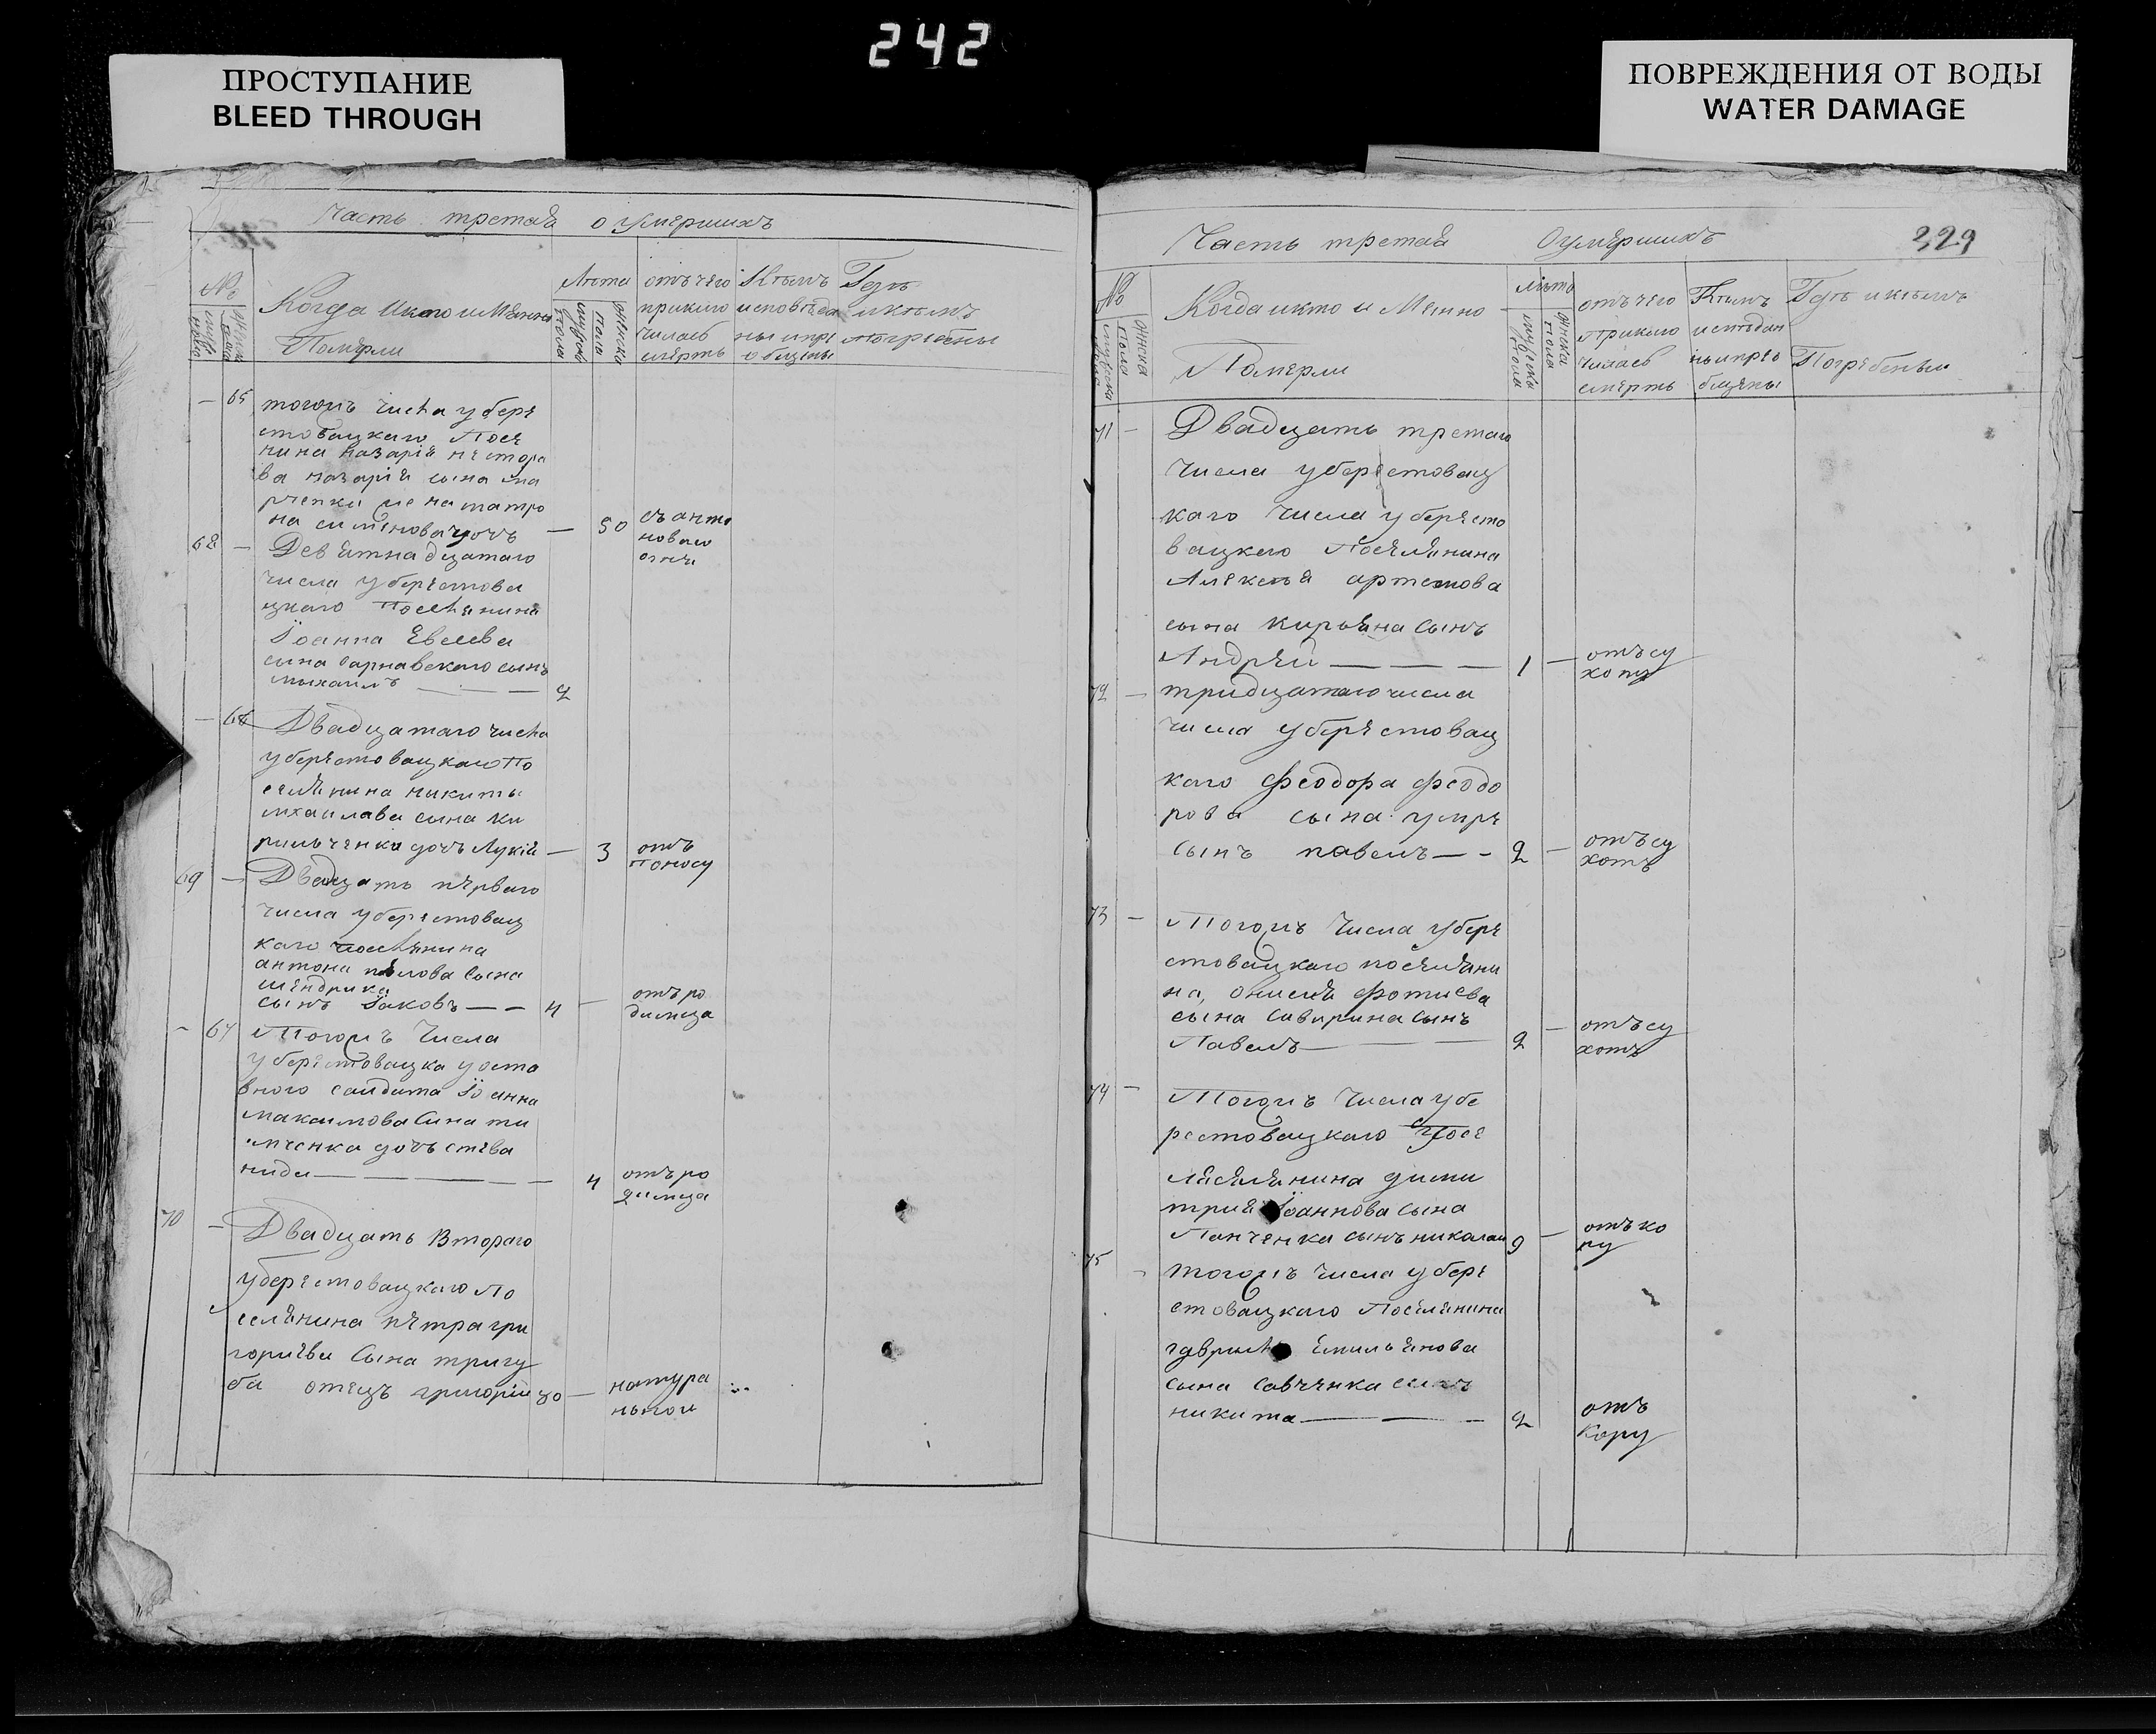 242
ПРОСТУПАНИЕ
BLEED THROUGH
ПОВРЕЖДЕНИЯ ОТ ВОДЫ
WATER DAMAGE
Часть третая о умершихъ
№
Когда икто и Мянно
Померли
Лета
мужска пола
женска пола
отъ чего
приклю
чилась
смерть
Кѣмъ
исповѣда
ны и прі
общены
Гдѣ
и кѣмъ
погребены
65
тогожъ числа убере
стовацкаго Посе
нина назарія нестора
ва назарія сына ма
рченки жена матро
на сименова дочъ — 50
съ анто
новаго
огня
68 — Девятнадцатаго
числа уберестова
цкаго Поселянина
Іоанна Евсеева
сина варнавскаго сынъ
михаилъ — 2
Двадцатаго числа
уберестовацкаго По
селянина никиты
михаилава сина Ки
рильченка дочъ Лукія — 3
отъ
поносу
69 — Двадцать перваго
числа уберестовац
каго поселянина
антона павлова сына
шендрика
сынъ Іаковъ — 4 —
отъ ро
димца
— 67 Тогожъ числа
уберестовацка уоста
вного салдата Іоанна
максимова Сина ти
мченка дочъ степа
нида — 4
отъ ро
димца
70 — Двадцать Втораго
уберестовацкаго по
селянина петра гри
горіева Сына тригу
ба отецъ григорій 30 —
натура
льной
Часть третая Оумершихъ
329
№
Когда икто и Мянно
Померли
лѣта
мужска пола
женска пола
отъ чего
приклю
чилась
смерть
Кѣмъ
исповдан
ны и прео
бщены
Гдѣ и кѣмъ
Погребены
71 — Двадцать третаго
числа уберестовац
каго числа убересто
вацкаго Поселянина
Алексея артемова
сына кирьяна сынъ
Андрей — 1 —
отъ су
хоту
72 — тридцатаго числа
числа уберестовац
каго Феодора Феодо
рова сына умре
сынъ павелъ — 2 —
отъ су
хотъ
73 — Тогожъ числа убере
стовацкаго поселяни
на, онисия Фотиева
сына Саверина сынъ
Павелъ — 2 —
отъ су
хотъ
74 — Тогожъ числа убе
рестовацкаго Посе
лянина дими
трия Іоаннова сына
Панченка сынъ николаи 9 —
отъ ко
ру
75 — тогожъ числа убере
стовацкаго Поселянина
гаврила Емильянова
сына Савченка сынъ
никита — 2
отъ
кору